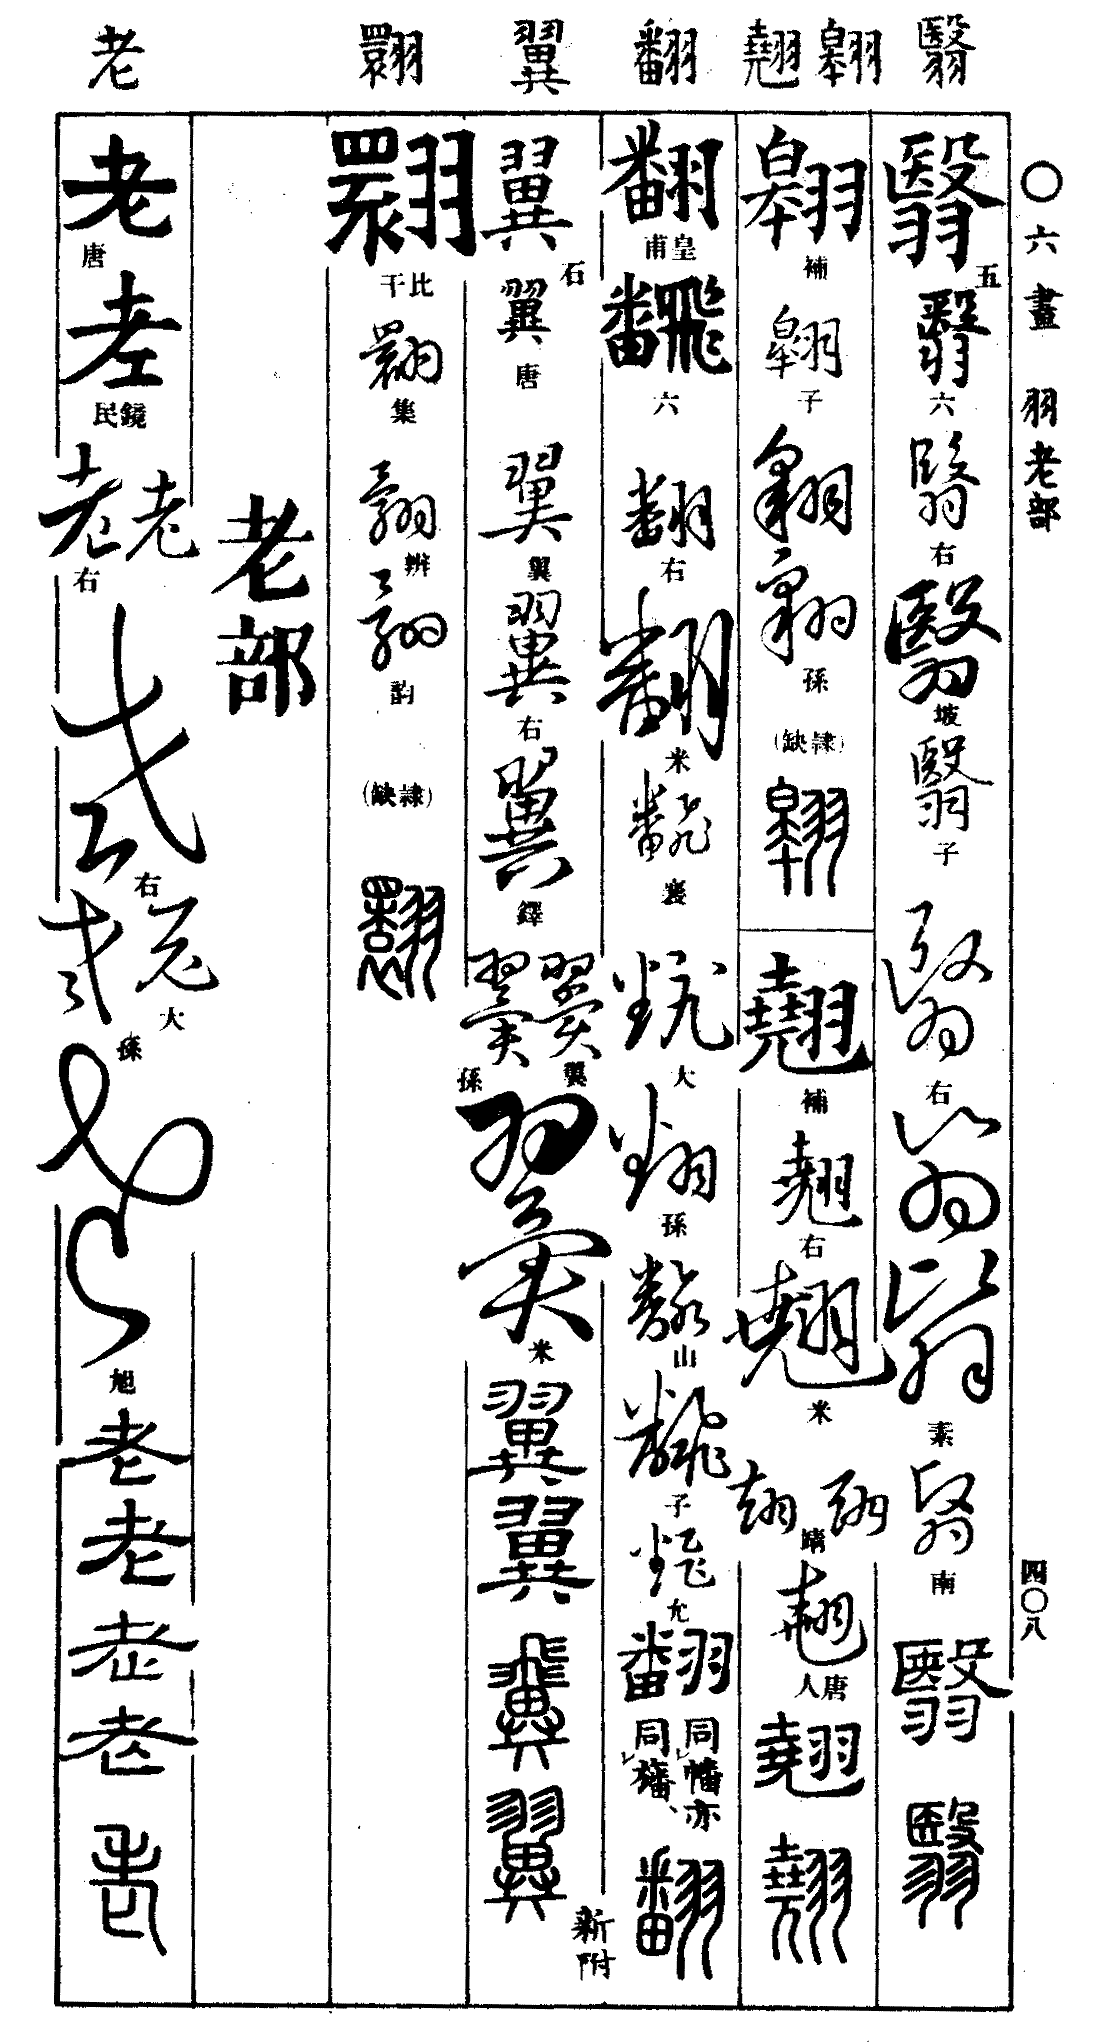 翳 翺 翹 翻 翼 翾 老
〇六畫 羽老部 四〇八
翳 五
翳 六
翳 右
翳 坡
翳 子
翳 右
翳
翳 素
翳 南
翳
翳
翺 補
翺 子
翺
翺 孫
(隷缺)
翺
翹 補
翹 右
翹 米
翹 翹 靖
翹 唐人
翹
翹
翻 皇甫
飜 六
翻 右
翻 米
飜 襄
飜 大
翻 孫
飜 山
飜 子
飜 允
翻
同幡亦同旛、
翻
新附
翼 石
翼 唐
翼 巽
翼 右
翼 鐸
翼 巽
翼 孫
翼 米
翼
翼
翼
翼
翾 比干
翾 集
翾 辨
翾 韵
(隷缺)
翾
老部
老 唐
老 民鏡
老 老 右
老 右
老 大
老 孫
老 旭
老
老
老
老
老